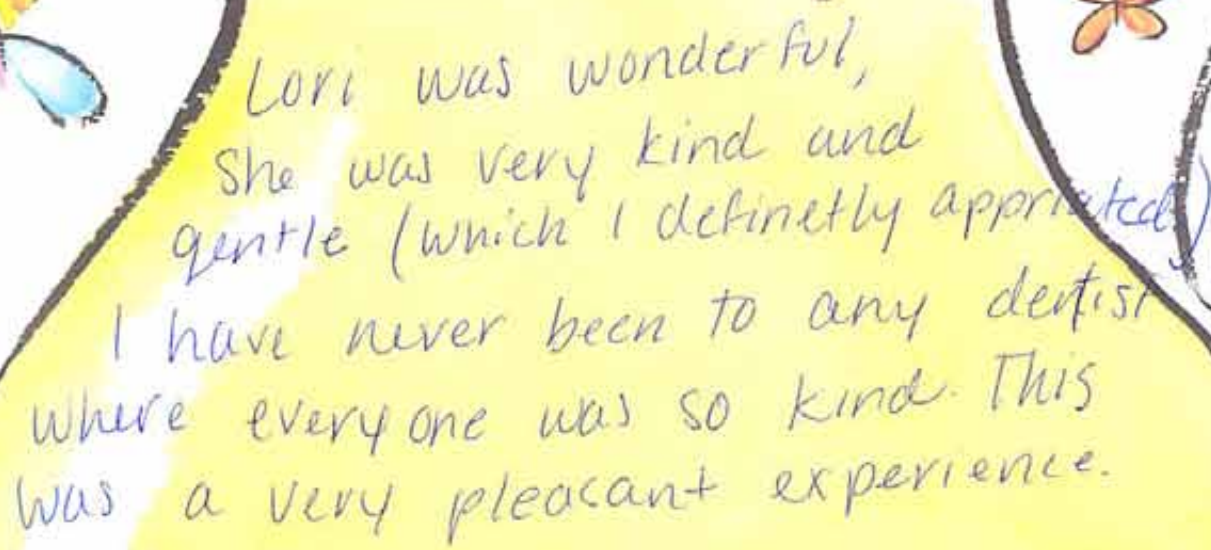 Lori was wonderful,
She was very kind and
gentle (which I definetly appriated)
I have never been to any dentist
where everyone was so kind. This
was a very pleasant experience.